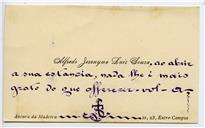 Alfredo Jesuyno Luiz Souza, ao abrir
a sua estancia, nada lhe é mais
grato do que offerecer-vol-a
Ancora da Madeira 11, 13, Entre Campos